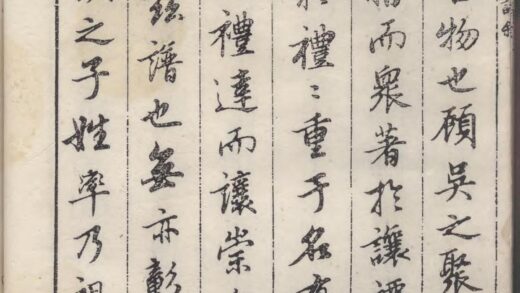 物也顧吳之聚
而衆著於讓
禮〻重于名
禮達而讓崇
譜也無亦彰
之子姓率乃祖